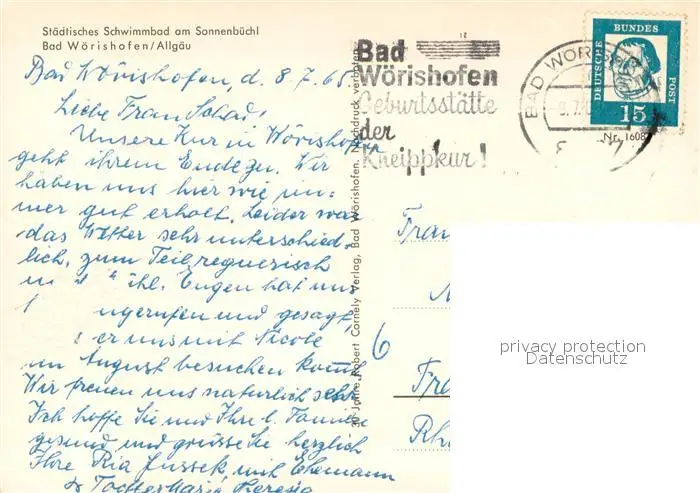 Städtisches Schwimmbad am Sonnenbüchl
Bad Wörishofen/Allgäu
Bad Wörishofen, d. 8.7.65.
Liebe Frau Schad!
Unsere Kur in Wörishofen
geht ihrem Ende zu. Wir
haben uns hier wie im-
mer gut erholt. Leider war
das Wetter sehr unterschied-
lich, zum Teil regnerisch
Eugen hat uns
ngerufen und gesagt,
er uns mit Nicole
im August besuchen kommt
Wir freuen uns natürlich sehr
Ich hoffe Sie und Ihre l. Familie
gesund und grüsse Sie herzlich
Ihre Ria Jussek, mit Ehemann
Tochter Maria Theresia
30 Jahre Robert Cornely Verlag, Bad Wörishofen. Nachdruck verboten.
Bad
Wörishofen
Geburtsstätte
der
Kneippkur!
BAD WÖRISHOFEN
DEUTSCHE BUNDESPOST
15
Nr. 1608
Frau
6
Fra
Rh
privacy protection
Datenschutz